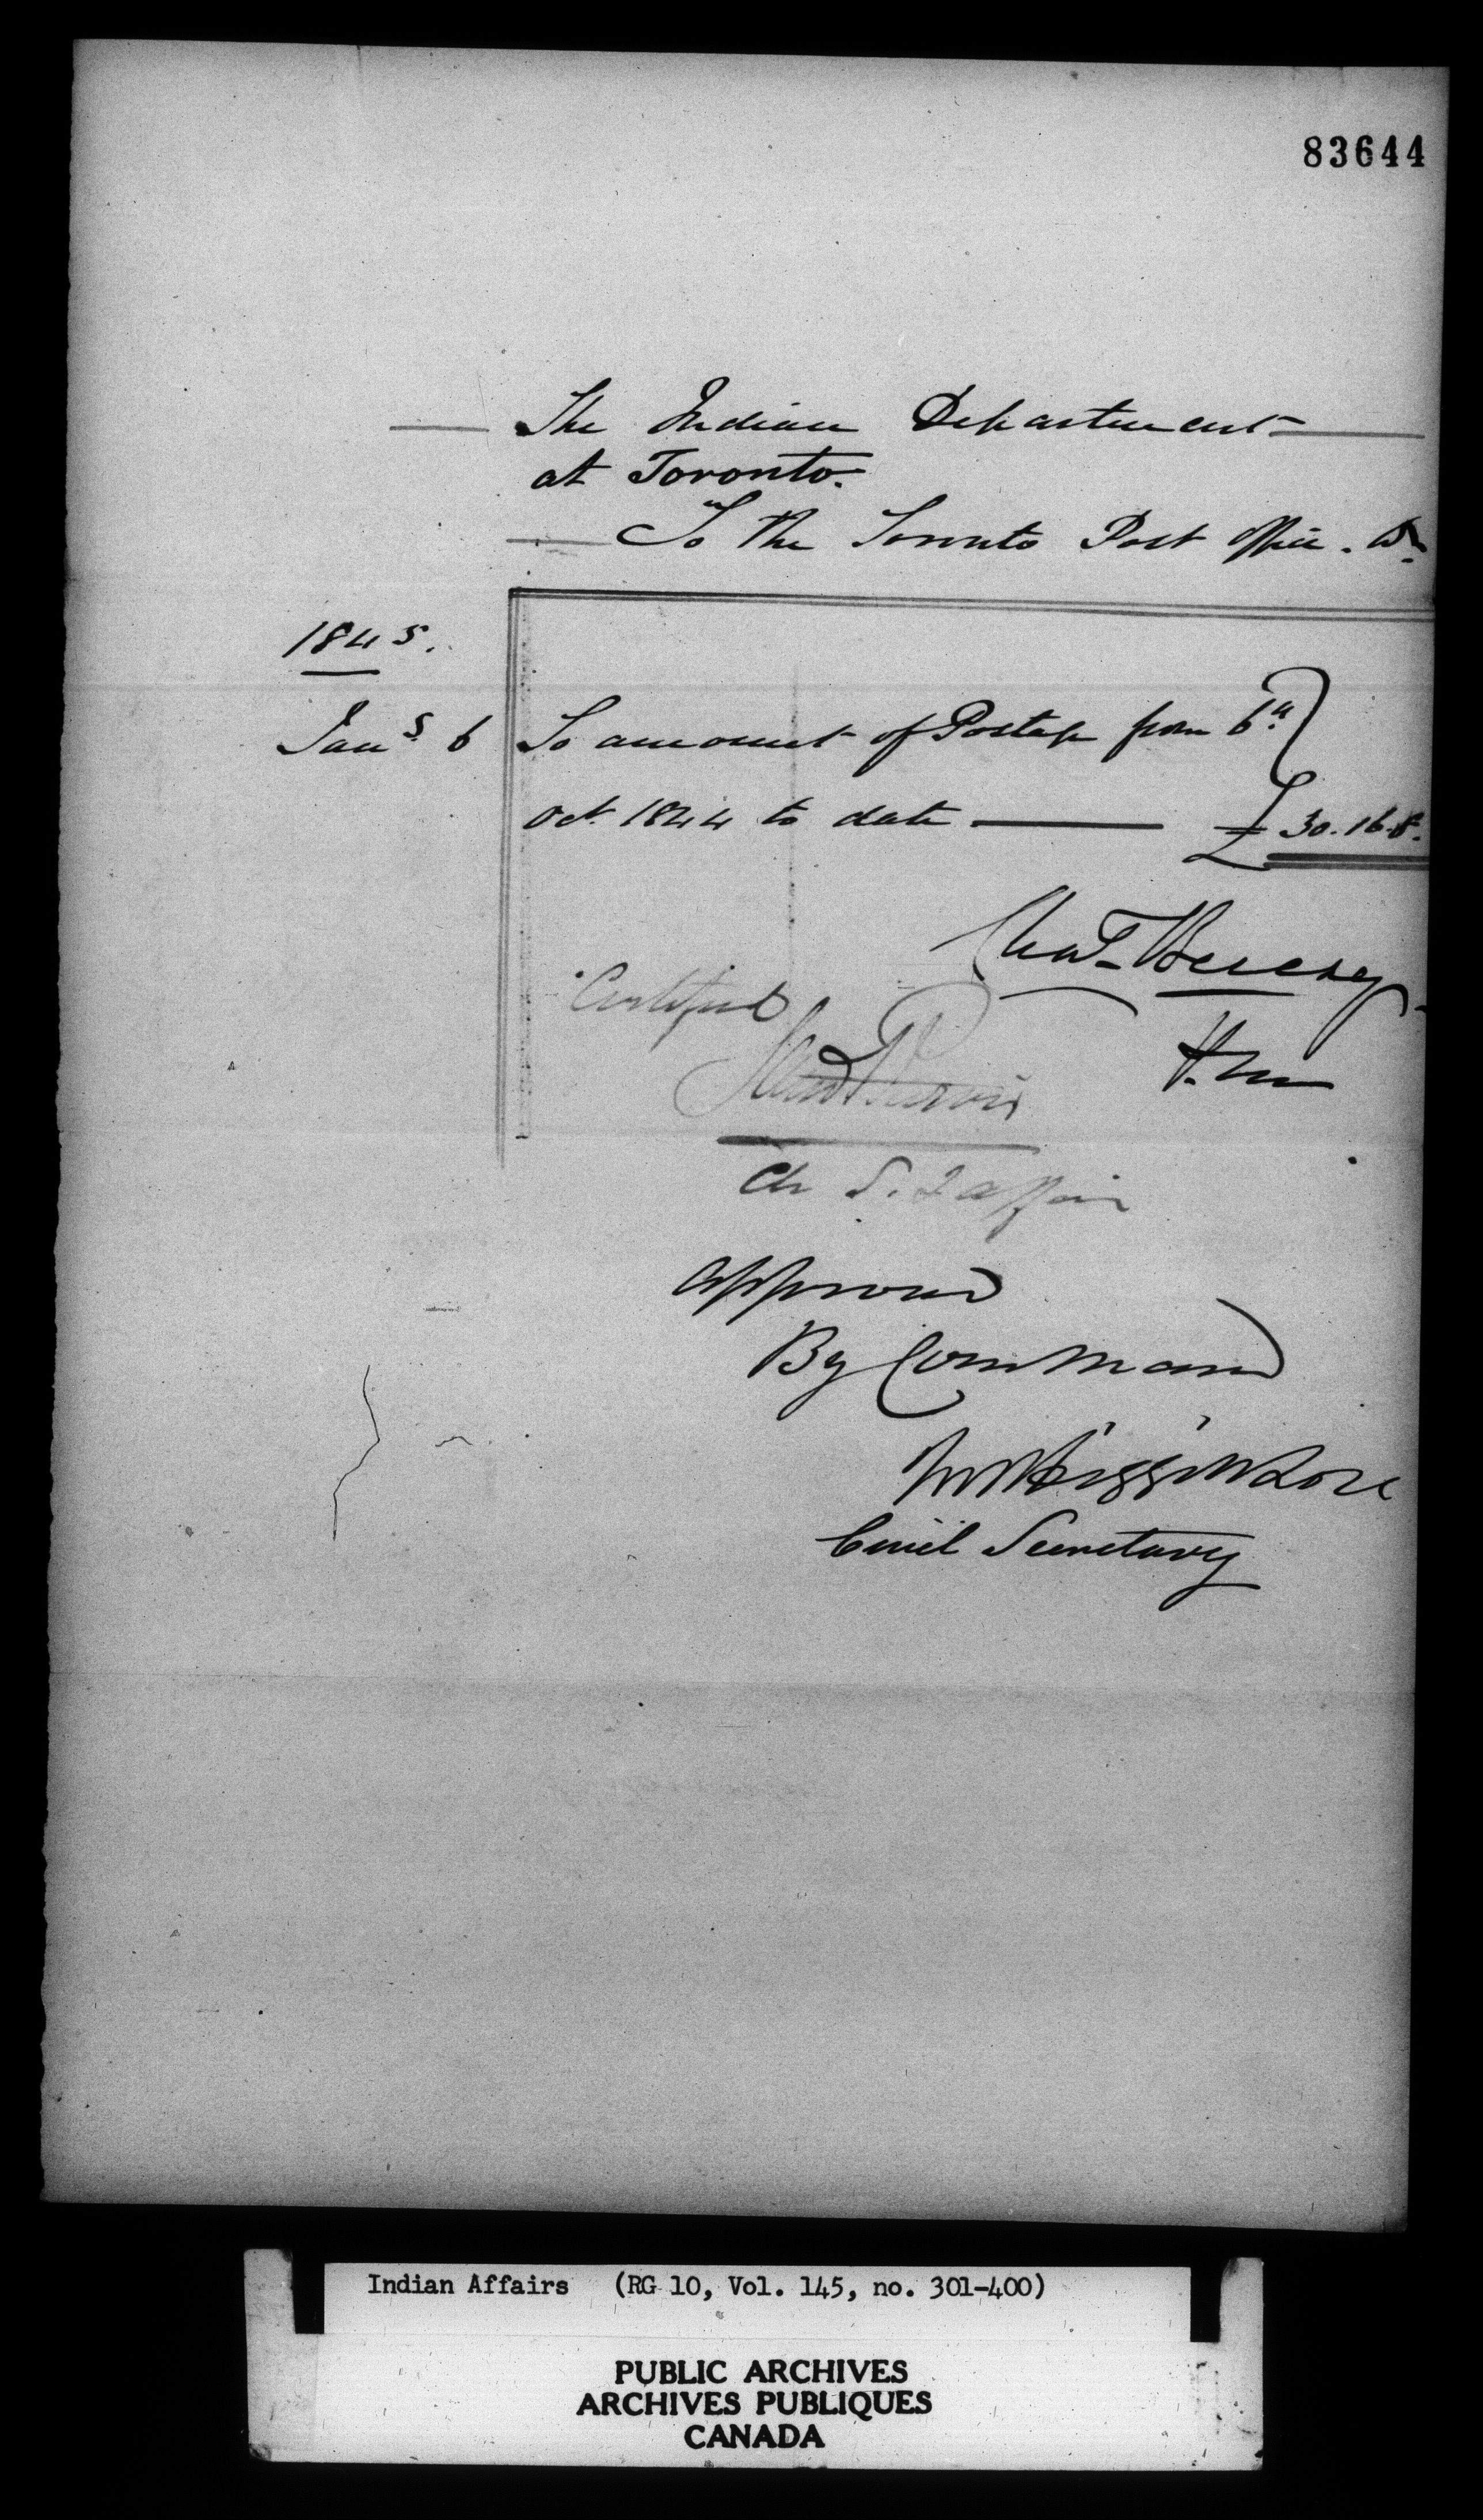 83644
The Indian Department
at Toronto.
To The Toronto Post Office. Dr.
1845.
Jany. 6 To amount of Postage from 6th
Oct. 1844 to date £ 30.16.8.
Chas. Berczy
P.M
Certified
Jarvis
Ch S. I affair
Approved
By Command
Higginson
Civil Secretary
Indian Affairs (RG 10, Vol. 145, no. 301-400)
PUBLIC ARCHIVES
ARCHIVES PUBLIQUES
CANADA